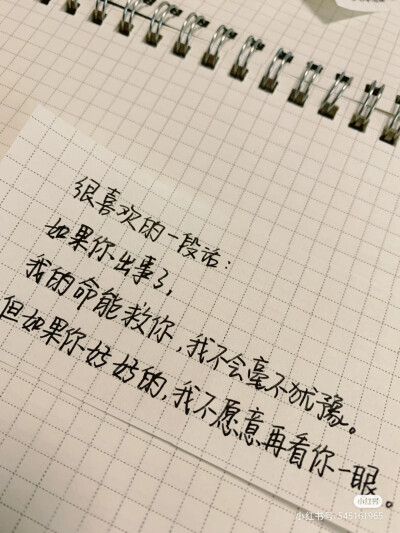 很喜欢的一段话：
如果你出事了，
我的命能救你，我不会毫不犹豫。
但如果你好好的，我不愿意再看你一眼。
小红书
小红书号: 545161965